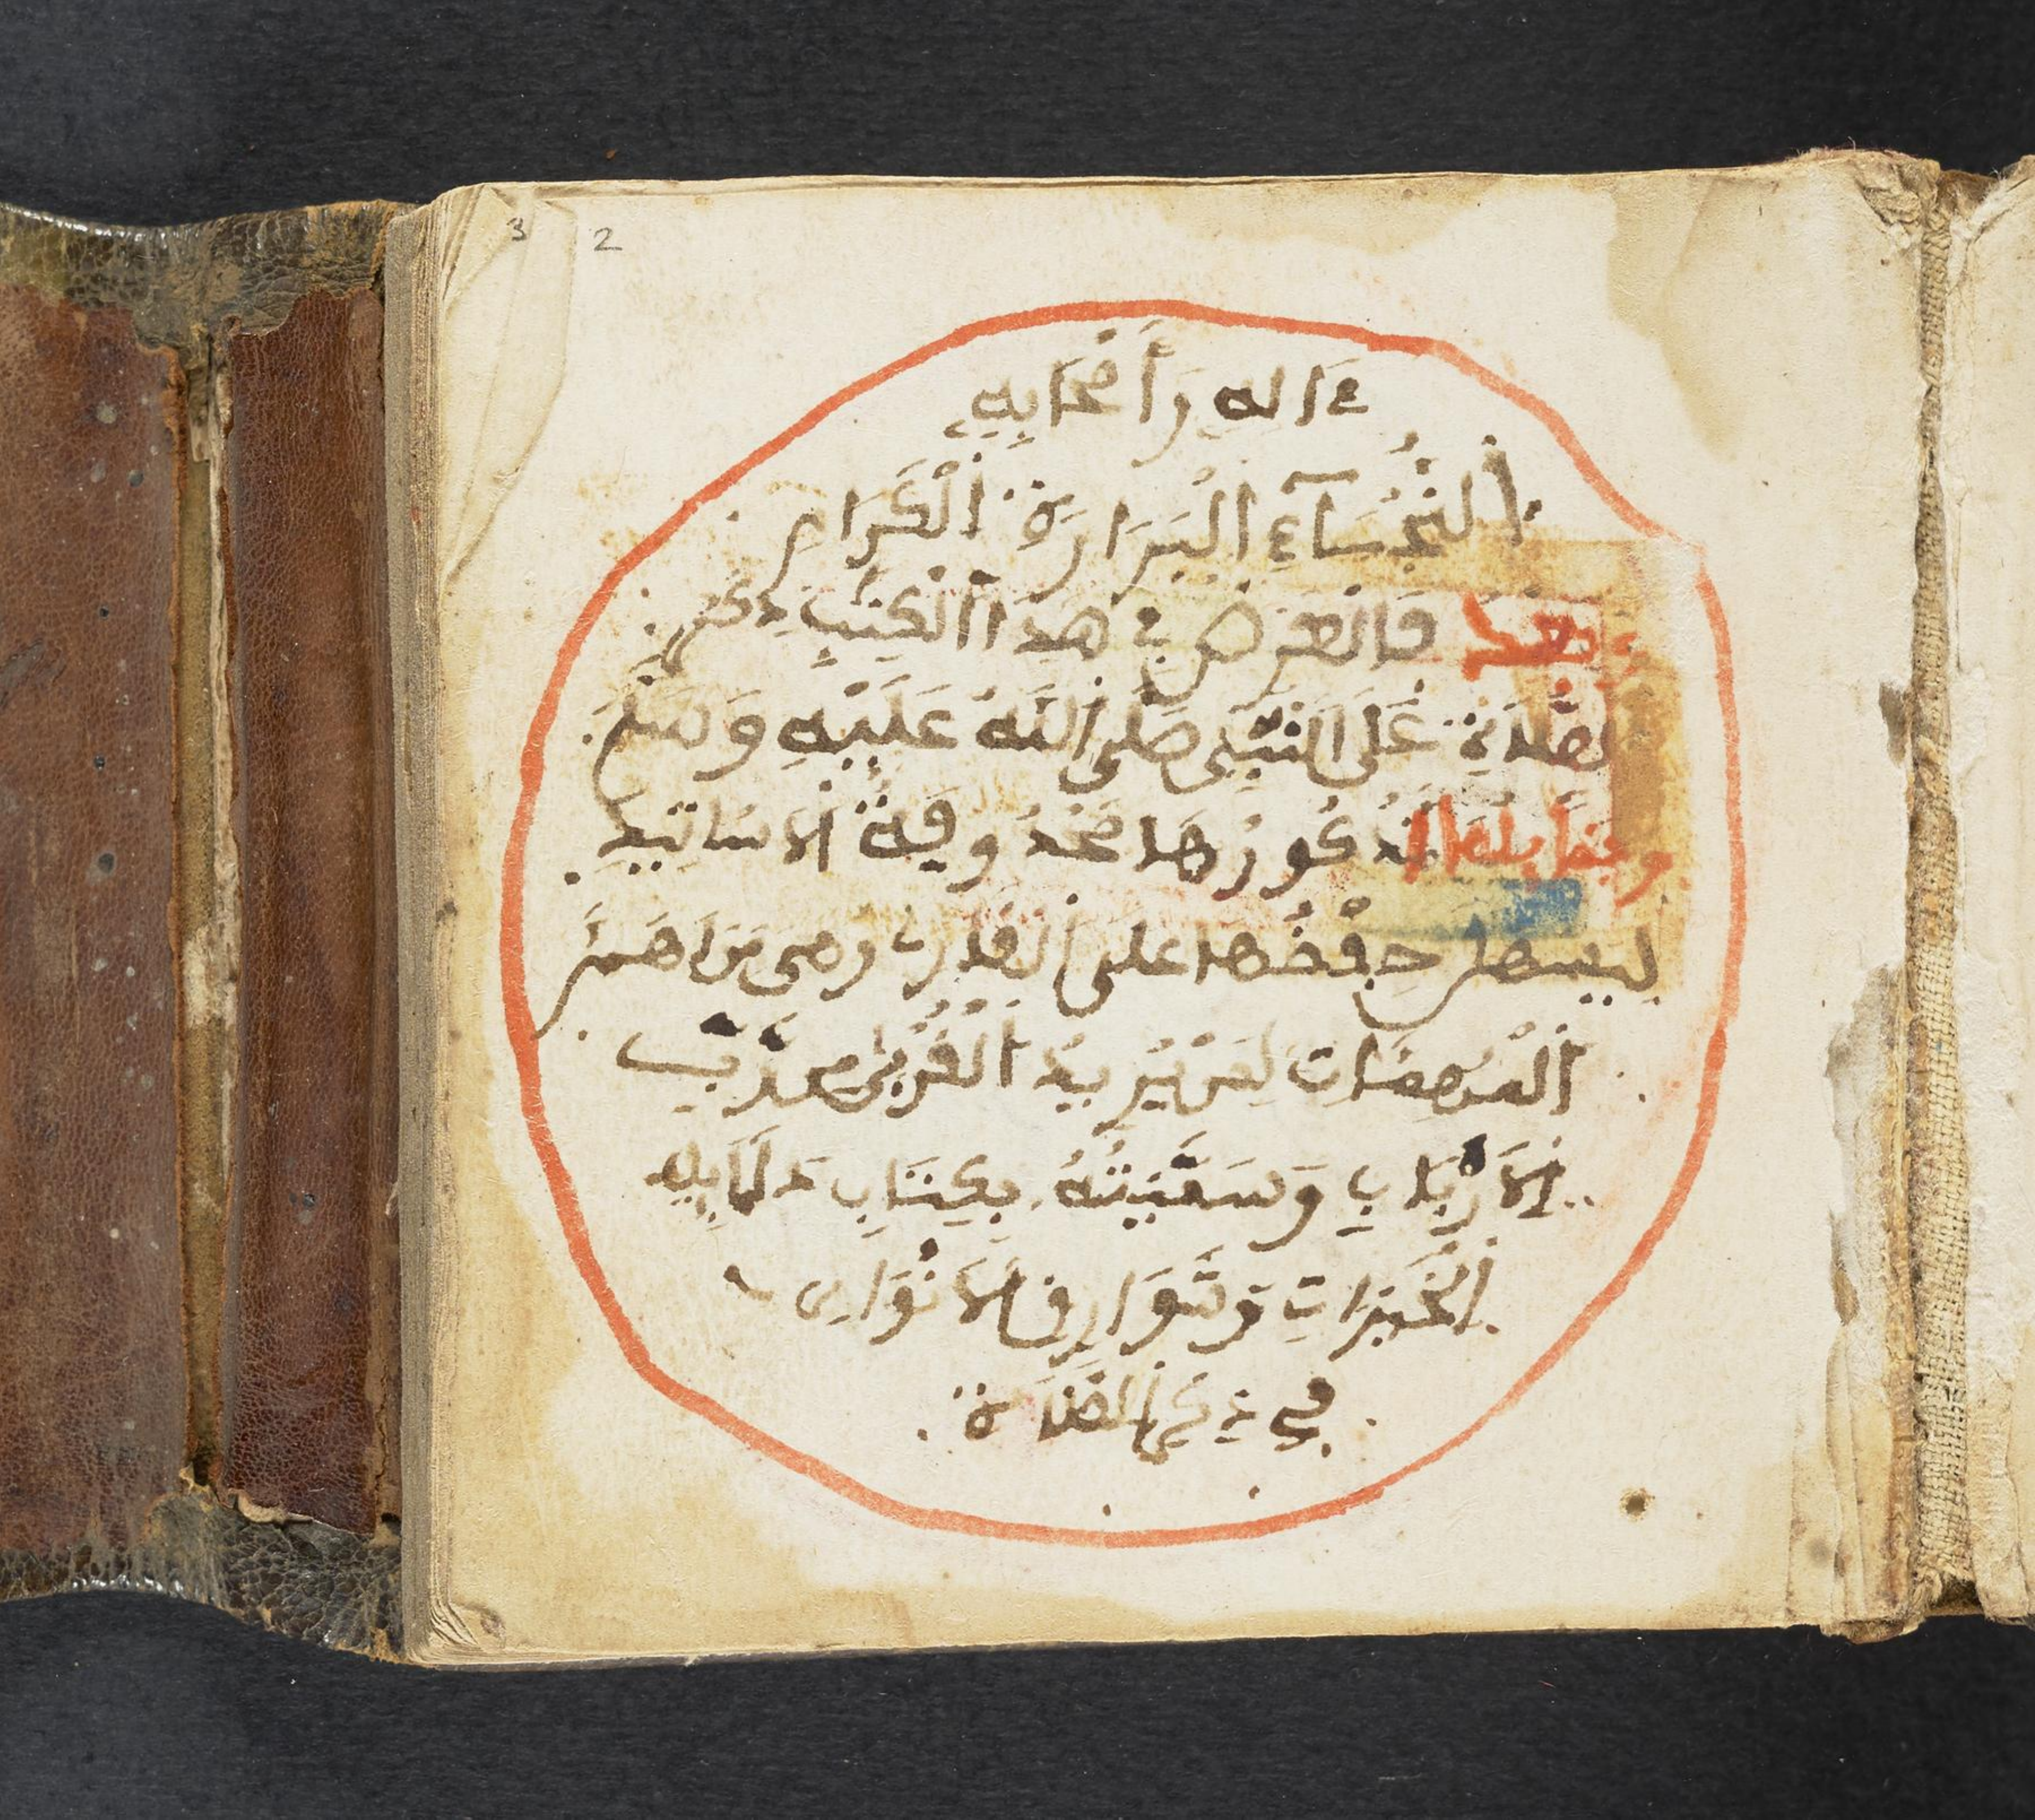 3 2
ءاله وأصحابه
النجباء البرارة الكرام
وبعد فالغرض في هذا الكتب ذكر
الصلاة على النبي صلى الله عليه وسلم
وفضايلها نذكورها محذوفة الاسانيد
ليسهل حفظها على القارى وهى من اهم
المهمات لمن يريد القرب من رب
الارباب وسميته بكتاب دلايل
الخيرات وشوارق الانوار
في ذكر الصلاة